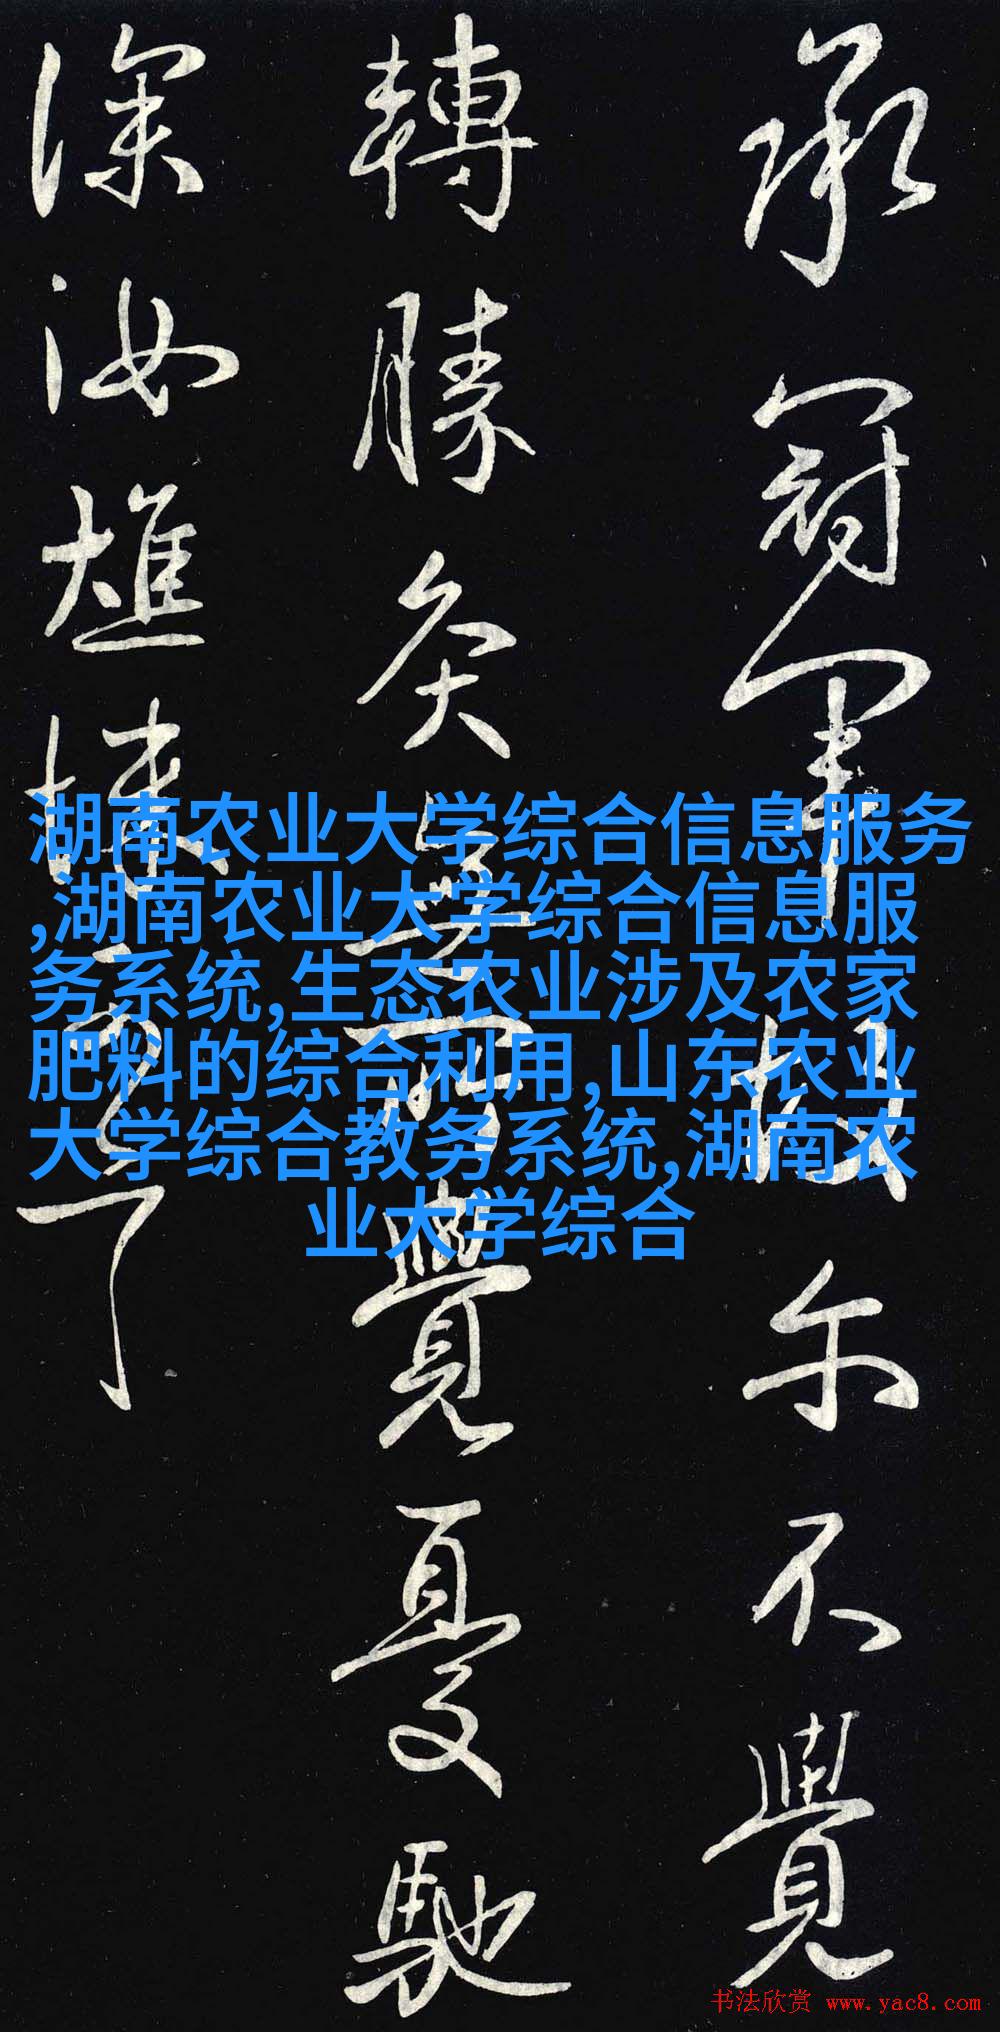 承冠軍故尔不覺
轉勝灸無所覺憂馳
深汝燋悚了
湖南农业大学综合信息服务
,湖南农业大学综合信息服
务系统,生态农业涉及农家
肥料的综合利用,山东农业
大学综合教务系统,湖南农
业大学综合
书法欣赏 www.yac8.com